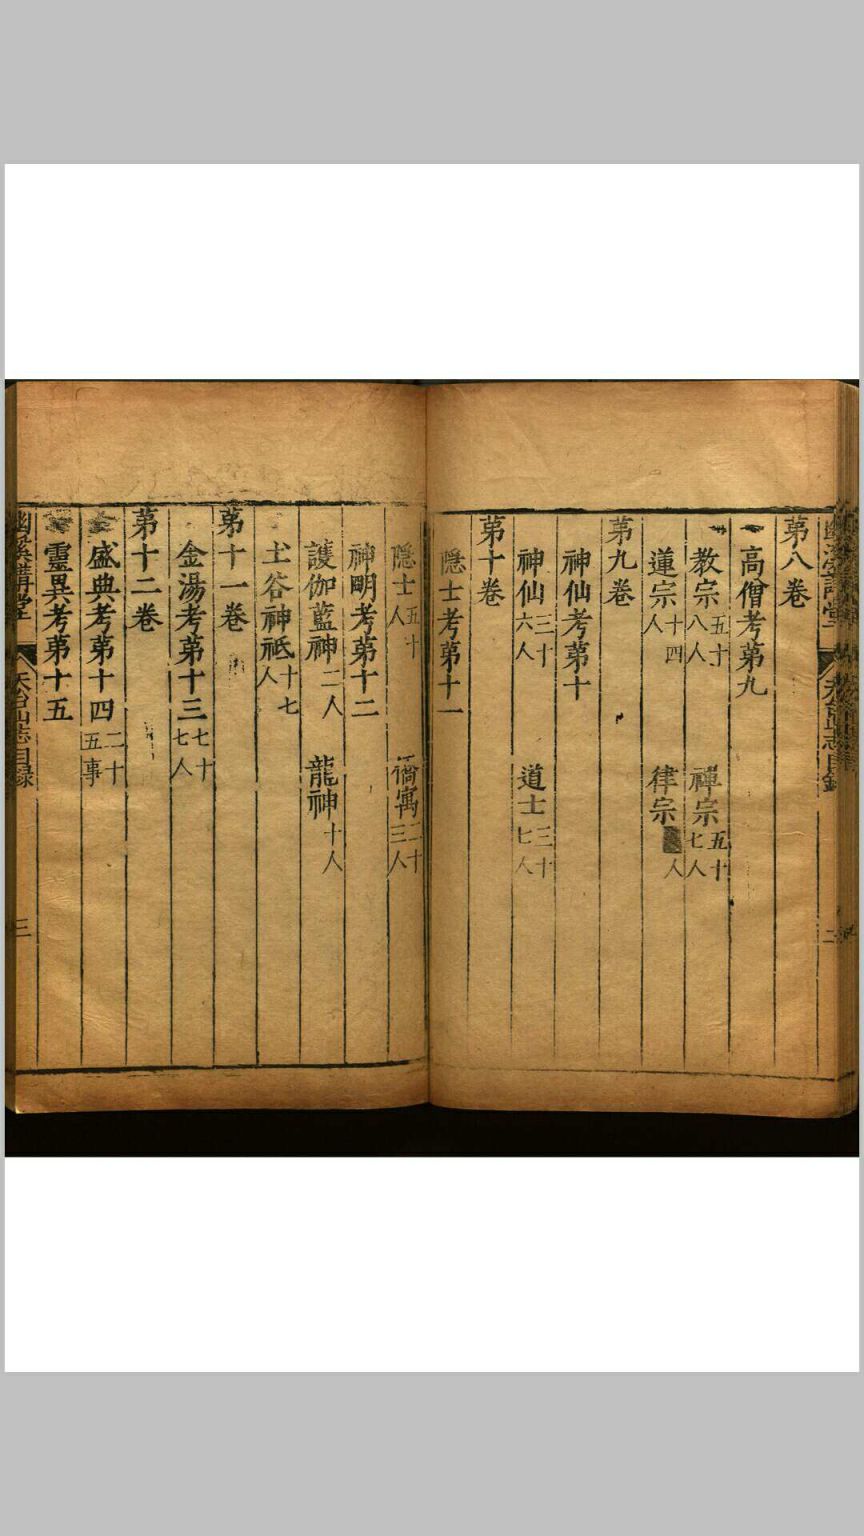 幽溪講堂 天台山志目錄 二
第八卷
高僧考第九
教宗五十八人 禪宗五十七人
蓮宗十四人 律宗人
第九卷
神仙考第十
神仙三十六人 道士三十七人
第十卷
隱士考第十一
隱士五十人 僑寓二十三人
神明考第十二
護伽藍神二人 龍神十人
土谷神祇十七人
第十一卷
金湯考第十三七十七人
第十二卷
盛典考第十四二十五事
靈異考第十五
幽溪講堂 天台山志目錄 三